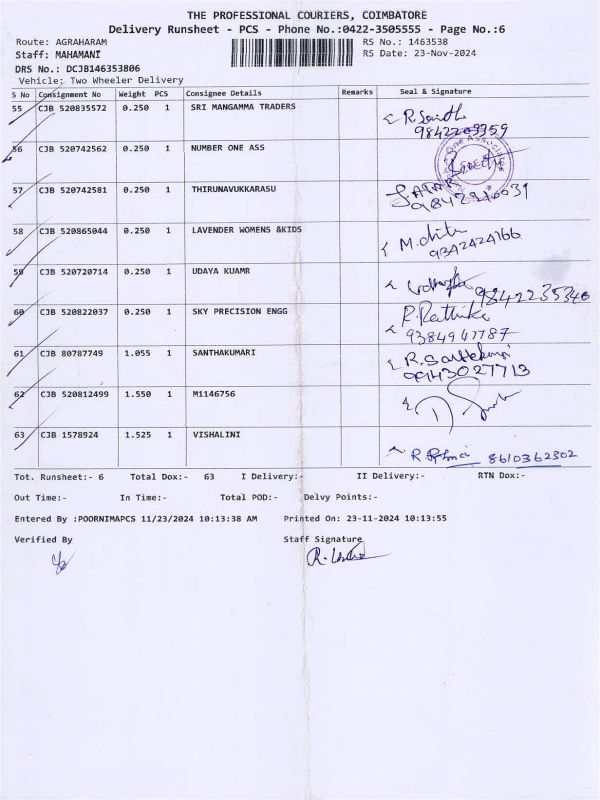 THE PROFESSIONAL COURIERS, COIMBATORE
Delivery Runsheet - PCS - Phone No.:0422-3505555 - Page No.:6
Route: AGRAHARAM RS No.: 1463538
Staff: MAHAMANI RS Date: 23-Nov-2024
DRS No.: DCJB146353806
Vehicle: Two Wheeler Delivery
S No Consignment No Weight PCS Consignee Details Remarks Seal & Signature
55 CJB 520835572 0.250 1 SRI MANGAMMA TRADERS
9842203359
56 CJB 520742562 0.250 1 NUMBER ONE ASS
57 CJB 520742581 0.250 1 THIRUNAVUKKARASU
58 CJB 520865044 0.250 1 LAVENDER WOMENS &KIDS
9342424166
59 CJB 520720714 0.250 1 UDAYA KUAMR
9842235346
60 CJB 520822037 0.250 1 SKY PRECISION ENGG
9384947787
61 CJB 80787749 1.055 1 SANTHAKUMARI
9943027713
62 CJB 520812499 1.550 1 M1146756
63 CJB 1578924 1.525 1 VISHALINI
8610362302
Tot. Runsheet:- 6 Total Dox:- 63 I Delivery:- II Delivery:- RTN Dox:-
Out Time:- In Time:- Total POD:- Delvy Points:-
Entered By :POORNIMAPCS 11/23/2024 10:13:38 AM Printed On: 23-11-2024 10:13:55
Verified By Staff Signature